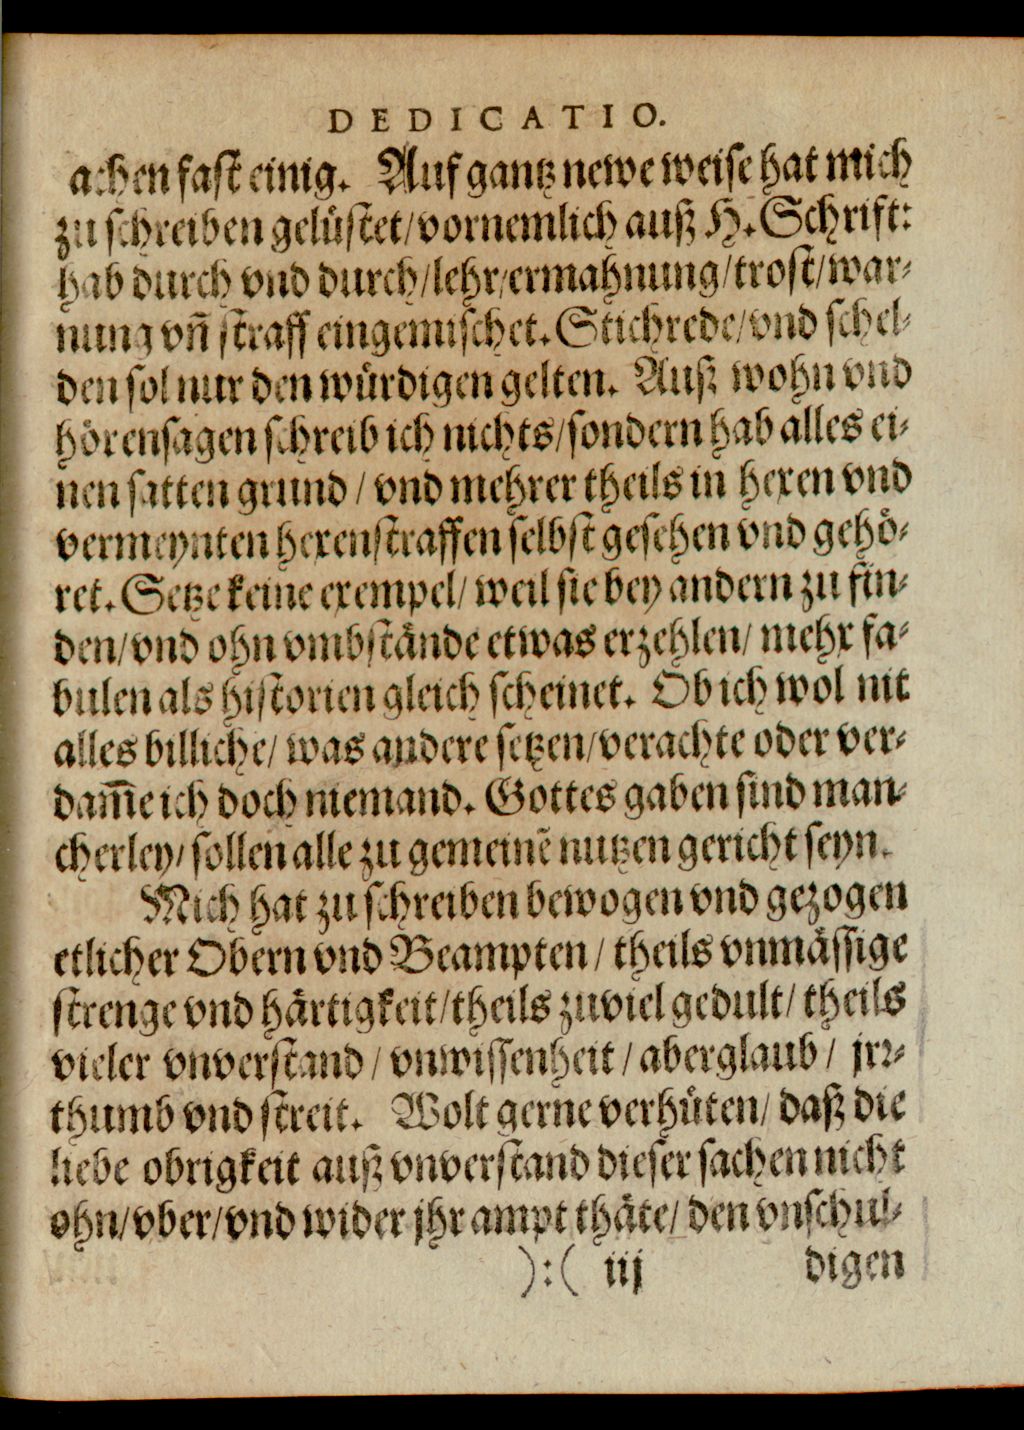 DEDICATIO.
achen fast einig. Auf gantz newe weise hat mich
zu schreiben gelüstet/vornemlich auß H. Schrift:
hab durch vnd durch/lehr/ermahnung/trost/war-
nung vñ straff eingemischet. Stichrede/vnd schel-
den sol nur den würdigen gelten. Auß wohn vnd
hörensagen schreib ich nichts/sondern hab alles ei-
nen satten grund/vnd mehrer theils in hexen vnd
vermeynten hexenstraffen selbst gesehen vnd gehö-
ret. Setze keine exempel/weil sie bey andern zu fin-
den/vnd ohn vmbstände etwas erzehlen/mehr fa-
bulen als historien gleich scheinet. Ob ich wol nit
alles billiche/was andere setzen/verachte oder ver-
dam̃e ich doch niemand. Gottes gaben sind man-
cherley/sollen alle zu gemeinẽ nutzen gericht seyn.
Mich hat zu schreiben bewogen vnd gezogen
etlicher Obern vnd Beampten/theils vnmässige
strenge vnd härtigkeit/theils zuviel gedult/theils
vieler vnverstand/vnwissenheit/aberglaub/jrr-
thumb vnd streit. Wolt gerne verhüten/daß die
liebe obrigkeit auß vnverstand dieser sachen nicht
ohn/vber/vnd wider jhr ampt thäte/den vnschul-
):( iij digen